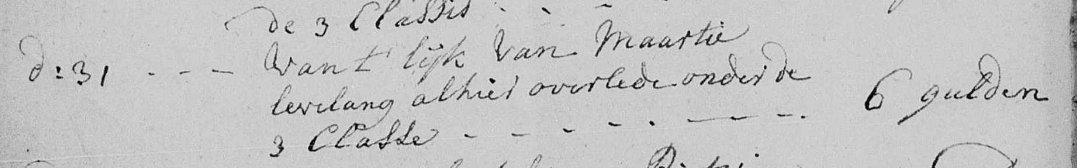 de 3 Classis - - -
d: 31 - - - Van t lijk Van Maartie
levelang alhier overlede onder de
3 Classe - - - - - - - 6 gulden